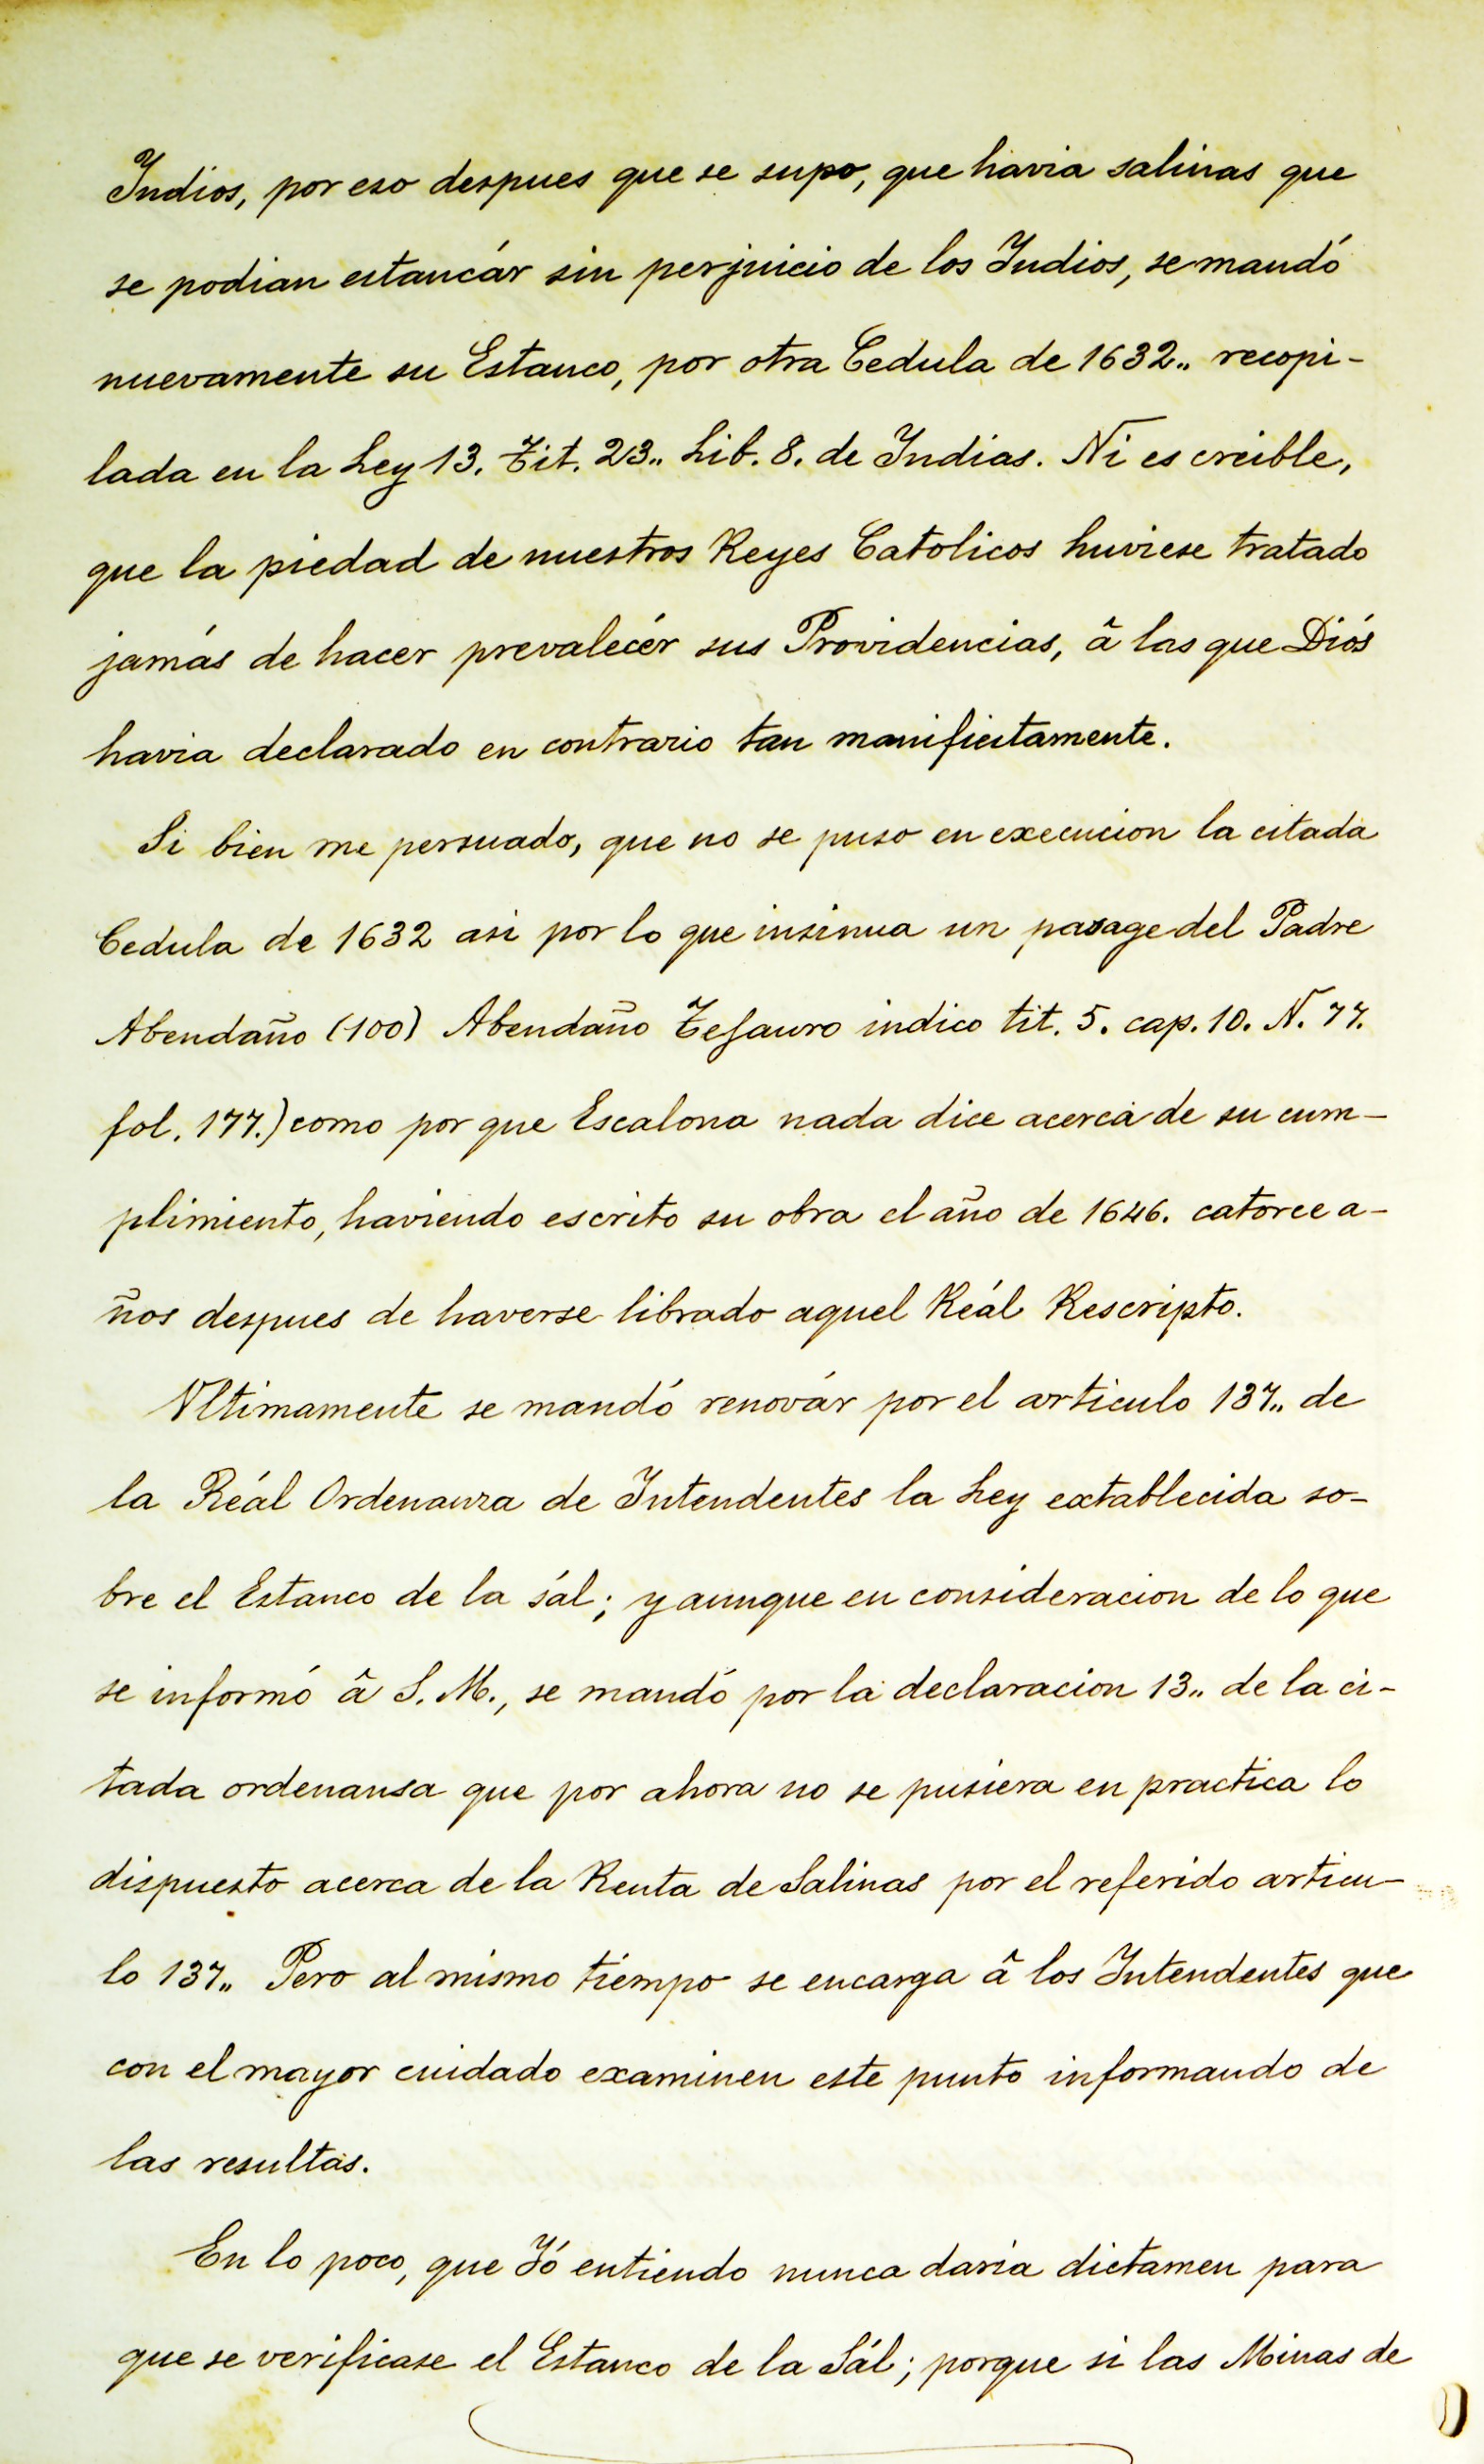 Indios, por eso despues que se supo, que havia salinas que
se podian estancár sin perjuicio de los Indios, se mandó
nuevamente su Estanco, por otra Cedula de 1632.. recopi-
lada en la Ley 13. Tit. 23.. Lib. 8. de Indias. Ni es creible,
que la piedad de nuestros Reyes Catolicos huviese tratado
jamás de hacer prevalecér sus Providencias, â las que Diós
havia declarado en contrario tan manifiestamente.
Si bien me persuado, que no se puso en execucion la citada
Cedula de 1632 asi por lo que insinua un pasage del Padre
Abendaño (100) Abendaño Tesauro indico tit. 5. cap. 10. N. 77.
fol. 177.) como por que Escalona nada dice acerca de su cum-
plimiento, haviendo escrito su obra el año de 1646. catorce a-
ños despues de haverse librado aquel Reál Rescripto.
Ultimamente se mandó renovár por el articulo 137.. de
la Reál Ordenanza de Intendentes la Ley extablecida so-
bre el Estanco de la sál; y aunque en consideracion de lo que
se informó â S. M., se mandó por la declaracion 13.. de la ci-
tada ordenansa que por ahora no se pusiera en practica lo
dispuesto acerca de la Renta de Salinas por el referido articu-
lo 137.. Pero al mismo tiempo se encarga â los Intendentes que
con el mayor cuidado examinen este punto informando de
las resultas.
En lo poco, que Yó entiendo nunca daria dictamen para
que se verificase el Estanco de la Sál; porque si las Minas de